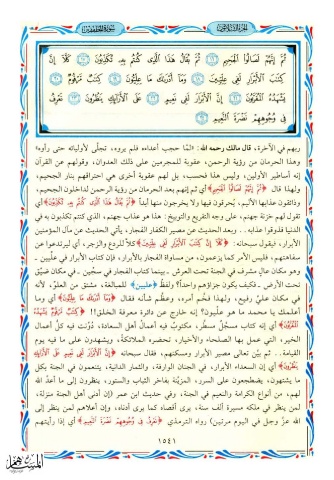 الجزء الثلاثون
سورة المطففين
ثُمَّ إِنَّهُمْ لَصَالُوا الْجَحِيمِ ثُمَّ يُقَالُ هَذَا الَّذِي كُنتُم بِهِ تُكَذِّبُونَ كَلَّا إِنَّ
كِتَابَ الْأَبْرَارِ لَفِي عِلِّيِّينَ وَمَا أَدْرَاكَ مَا عِلِّيُّونَ كِتَابٌ مَّرْقُومٌ
يَشْهَدُهُ الْمُقَرَّبُونَ إِنَّ الْأَبْرَارَ لَفِي نَعِيمٍ عَلَى الْأَرَائِكِ يَنظُرُونَ تَعْرِفُ
فِي وُجُوهِهِمْ نَضْرَةَ النَّعِيمِ
ربهم في الآخرة، قال مالك رحمه الله: "لمَّا حجب أعداءه فلم يروه، تجلَّى لأوليائه حتى رأوه"
وهذا الحرمان من رؤية الرحمن، عقوبة للمجرمين على ذلك العدوان، وقولهم عن القرآن
إنه أساطير الأولين، وليس هذا فحسب، بل لهم عقوبة أخرى هي احتراقهم بنار الجحيم،
ولهذا قال ﴿ثُمَّ إِنَّهُمْ لَصَالُوا الْجَحِيمِ﴾ أي ثم إنهم بعد الحرمان من رؤية الرحمن لداخلون الجحيم،
وذائقون عذابها الأليم، يُحرقون فيها ولا يخرجون منها أبداً ﴿ثُمَّ يُقَالُ هَذَا الَّذِي كُنتُم بِهِ تُكَذِّبُونَ﴾ أي
تقول لهم خزنة جهنم، على وجه التقريع والتوبيخ: هذا هو عذاب جهنم، الذي كنتم تكذبون به في
الدنيا فذوقوا عذابه.. وبعد الحديث عن مصير الكفار الفجار، يأتي الحديث عن مآل المؤمنين
الأبرار، فيقول سبحانه: ﴿كَلَّا إِنَّ كِتَابَ الْأَبْرَارِ لَفِي عِلِّيِّينَ﴾ كلا للردع والزجر، أي ليرتدعوا عن
سفاهتهم، فليس الأمر كما يزعمون، من مساواة الفجار بالأبرار، فإن كتاب الأبرار في علِّيين ـ
وهو مكان عالٍ مشرف في الجنة تحت العرش ـ بينما كتاب الفجار في سجِّين ـ في مكان ضيّق
تحت الأرض ـ فكيف يكون جزاؤهم واحداً؟ ولفظُ ﴿علّيين﴾ للمبالغة، مشتق من العلوّ، لأنه
في مكان عليّ رفيع، ولهذا فخَّم أمره وعظَّم شأنه فقال ﴿وَمَا أَدْرَاكَ مَا عِلِّيُّونَ﴾ أي وما
أعلمك يا محمد ما هو علِّيون؟ إنه خارج عن دائرة معرفة الخلق!! ﴿كِتَابٌ مَّرْقُومٌ يَشْهَدُهُ
الْمُقَرَّبُونَ﴾ أي إنه كتاب مسجَّل مسطَّر، مكتوب فيه أعمال أهل السعادة، دُوّنت فيه كلُّ أعمال
الخير، التي عمل بها الصلحاء والأخيار، تحضره الملائكة، ويشهدون على ما فيه يوم
القيامة.. ثم بيَّن تعالى مصير الأبرار ومسكنهم، فقال سبحانه ﴿إِنَّ الْأَبْرَارَ لَفِي نَعِيمٍ عَلَى الْأَرَائِكِ
يَنظُرُونَ﴾ أي إن السعداء الأبرار، في الجنان الوارفة، والثمار الدانية، يتنعمون في الجنة بكل
ما يشتهون، يضطجعون على السرر، المزيّنة بفاخر الثياب والستور، ينظرون إلى ما أعدَّ الله
لهم، من أنواع الكرامة والنعيم في الجنة، وفي حديث ابن عمر (إن أدنى أهل الجنة منزلة،
لمن ينظر في ملكه مسيرة ألف سنة، يرى أقصاه كما يرى أدناه، وإن أعلاهم لمن ينظر إلى
الله عزَّ وجل في اليوم مرتين) رواه الترمذي ﴿تَعْرِفُ فِي وُجُوهِهِمْ نَضْرَةَ النَّعِيمِ﴾ أي إذا رأيتهم
١٥٤١